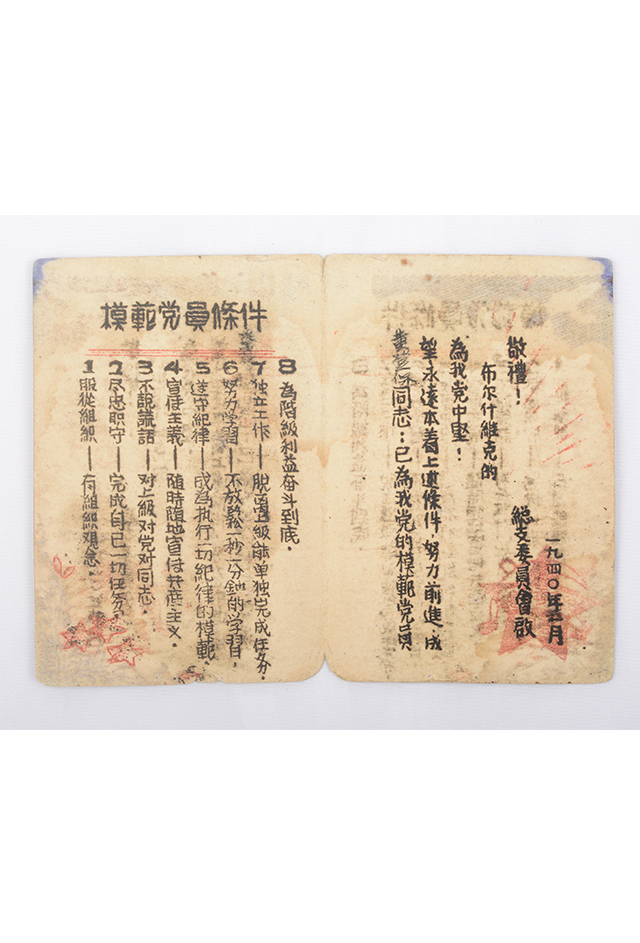 模範党員條件
1 服從組織——有組織观念.
2 尽忠职守——完成自己一切任务.
3 不說謊話——对上級对党对同志.
4 宣传主义——隨時隨地宣传共產主义.
5 遵守紀律——成為执行一切紀律的模範.
6 努力学習——不放鬆一秒一分鈡的学習.
7 独立工作——脫离上級能单独完成任务.
8 為階級利益奋斗到底.
同志:已為我党的模範党員
望永遠本着上述條件,努力前進,成
為我党中堅!
布尔什維克的
敬禮!
總支委員會啟
一九四〇年 月